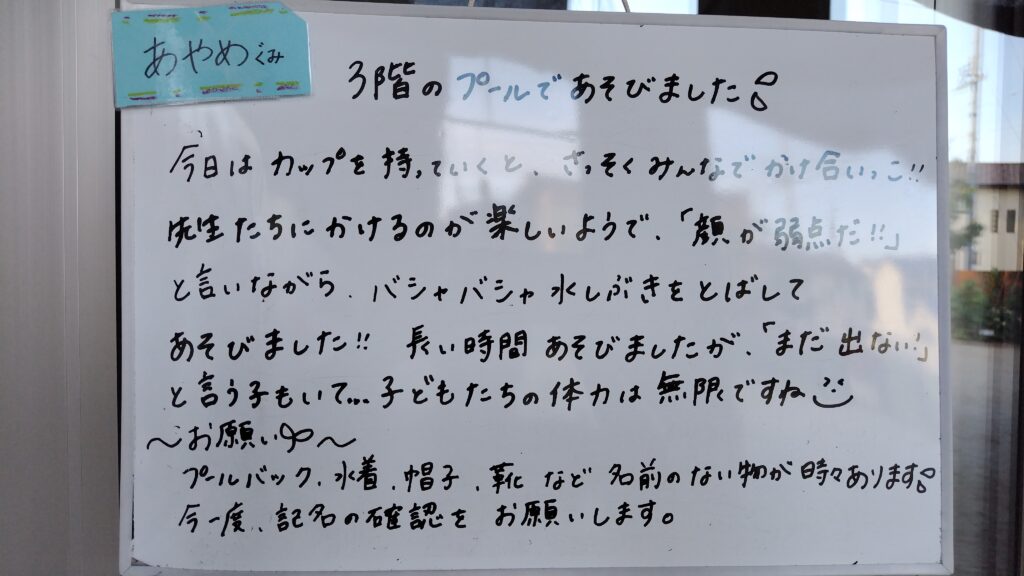 あやめぐみ
3階のプールであそびました
今日は カップを 持っていくと、さっそくみんなで かけ合いっこ!!
先生たちにかけるのが楽しいようで、「顔が弱点だ!!」
と言いながら、バシャバシャ水しぶきをとばして
あそびました!! 長い時間 あそびましたが、「まだ出ない!」
と言う子もいて...子どもたちの体力は無限ですね
～お願い～
プールバック、水着、帽子、靴 など 名前のない物が時々あります
今一度、記名の確認を お願いします。